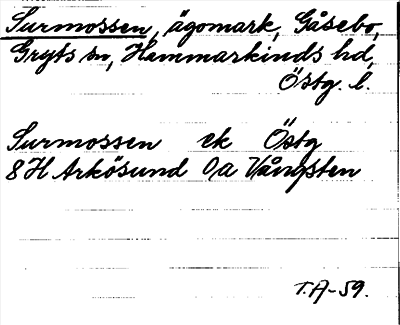 Surmossen, ägomark, Gåsebo,
Gryts sn, Hammarkinds hd,
Östg. l.
Surmossen ek Östg
8H Arkösund 0/a Vångsten
T.A-59.